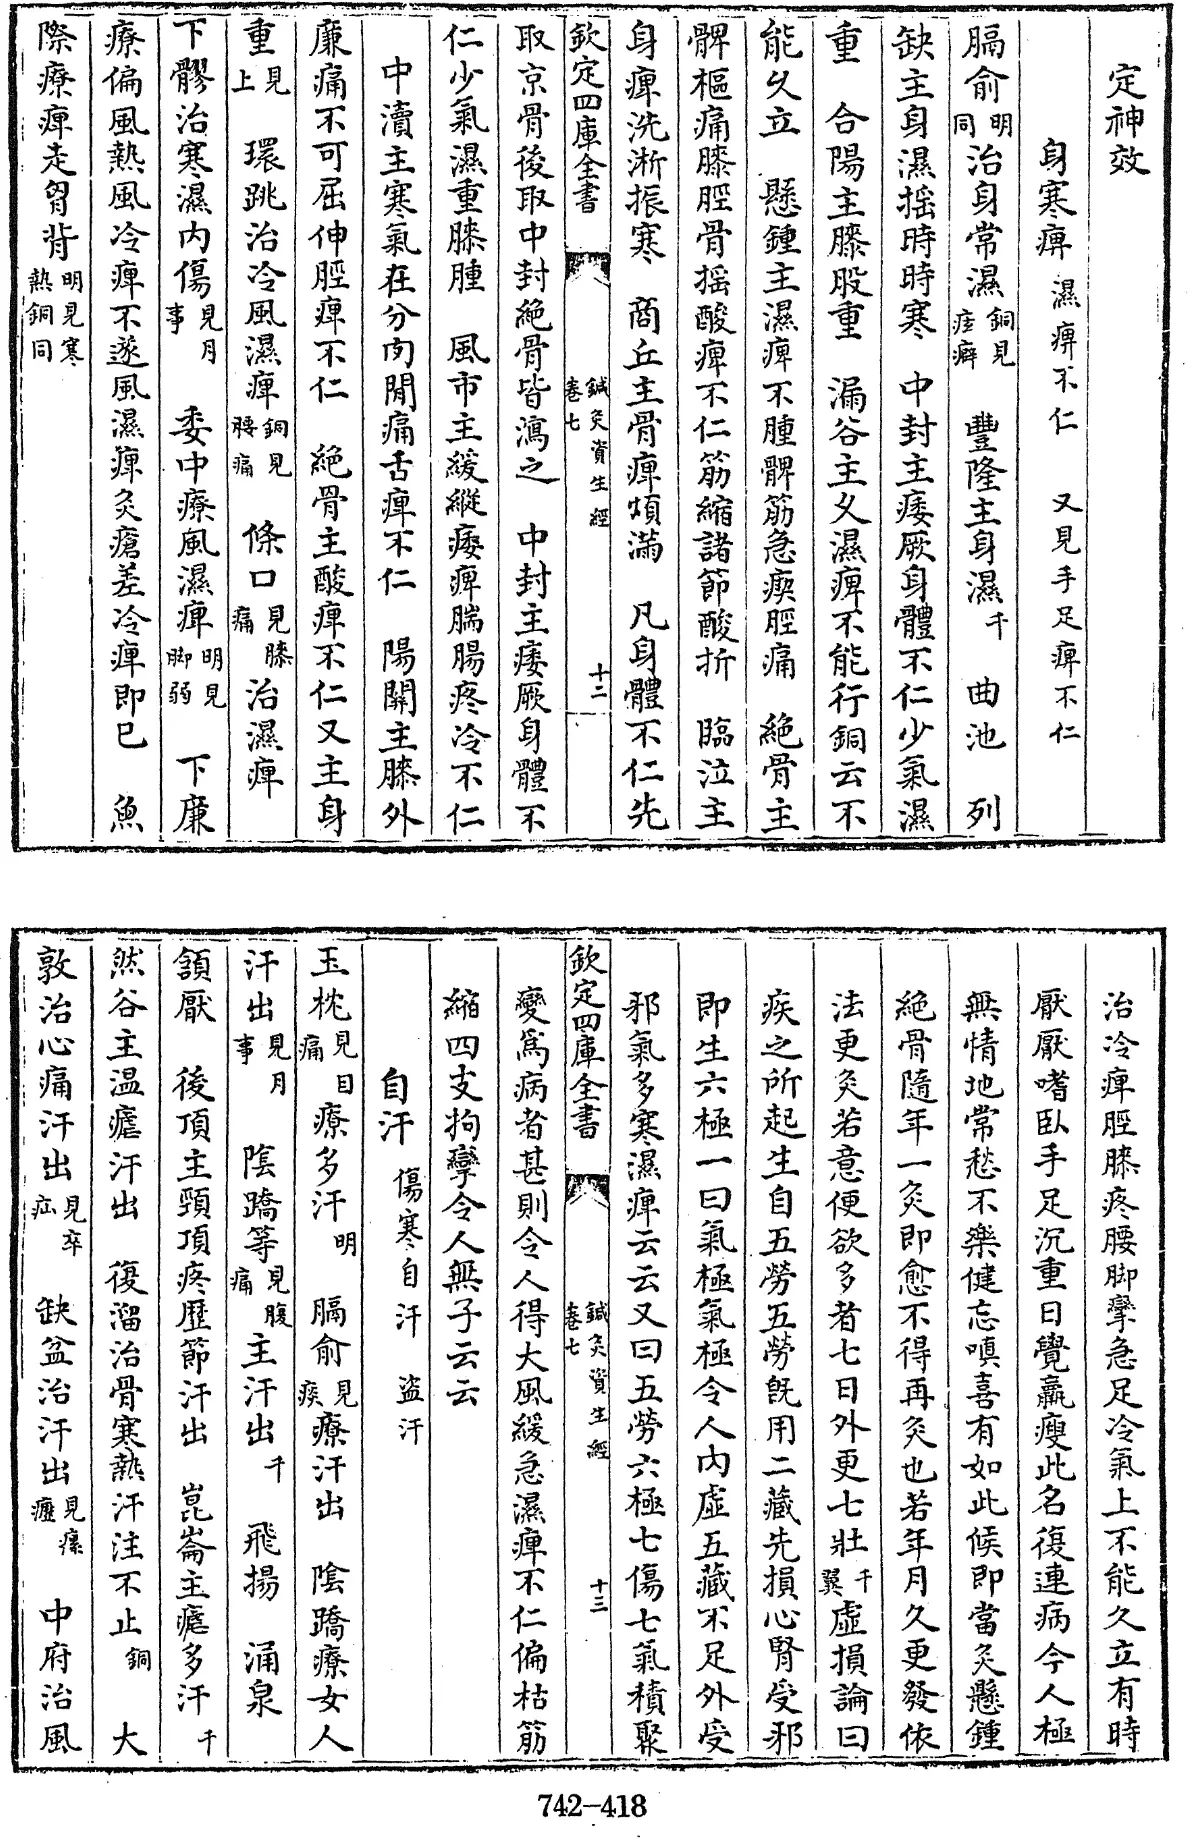 定神效
身寒痹　濕痹不仁　又見手足痹不仁
膈俞明同治身常濕銅見痃癖　豐隆主身濕千　曲池　列
缺主身濕揺時時寒　中封主痿厥身體不仁少氣濕
重　合陽主膝股重　漏谷主久濕痹不能行銅云不
能久立　懸鍾主濕痹不腫髀筋急瘈脛痛　絶骨主
髀樞痛膝脛骨揺酸痹不仁筋縮諸節酸折　臨泣主
身痹洗淅振寒　商丘主骨痹煩滿　凡身體不仁先
欽定四庫全書　鍼灸資生經卷七　十二
取京骨後取中封絶骨皆瀉之　中封主痿厥身體不
仁少氣濕重膝腫　風市主緩縱痿痹腨腸疼冷不仁
中瀆主寒氣在分肉間痛舌痹不仁　陽關主膝外
廉痛不可屈伸脛痹不仁　絶骨主酸痹不仁又主身
重見上　環跳治冷風濕痹銅見腰痛　條口見膝痛治濕痹
下髎治寒濕内傷見月事　委中療風濕痹明見脚弱　下廉
療偏風熱風冷痹不遂風濕痹灸瘡差冷痹即已　魚
際療痹走胷背明見寒熱銅同
治冷痹脛膝疼腰脚攣急足冷氣上不能久立有時
厭厭嗜臥手足沉重日覺羸瘦此名復連病令人極
無情地常愁不樂健忘嗔喜有如此候即當灸懸鍾
絶骨隨年一灸即愈不得再灸也若年月久更發依
法更灸若意便欲多者七日外更七壯千翼虚損論曰
疾之所起生自五勞五勞旣用二藏先損心腎受邪
即生六極一曰氣極氣極令人内虚五藏不足外受
邪氣多寒濕痹云云又曰五勞六極七傷七氣積聚
欽定四庫全書　鍼灸資生經卷七　十三
變爲病者甚則令人得大風緩急濕痹不仁偏枯筋
縮四支拘攣令人無子云云
自汗　傷寒自汗　盗汗
玉枕見目痛療多汗明　膈俞見痰療汗出　隂蹻療女人
汗出見月事　隂蹻等見腹痛主汗出千　飛揚　涌泉
頷厭　後頂主頸項疼歴節汗出　崑崙主瘧多汗千
然谷主温瘧汗出　復溜治骨寒熱汗注不止銅　大
敦治心痛汗出見卒疝　缺盆治汗出見瘰癧　中府治風
742-418